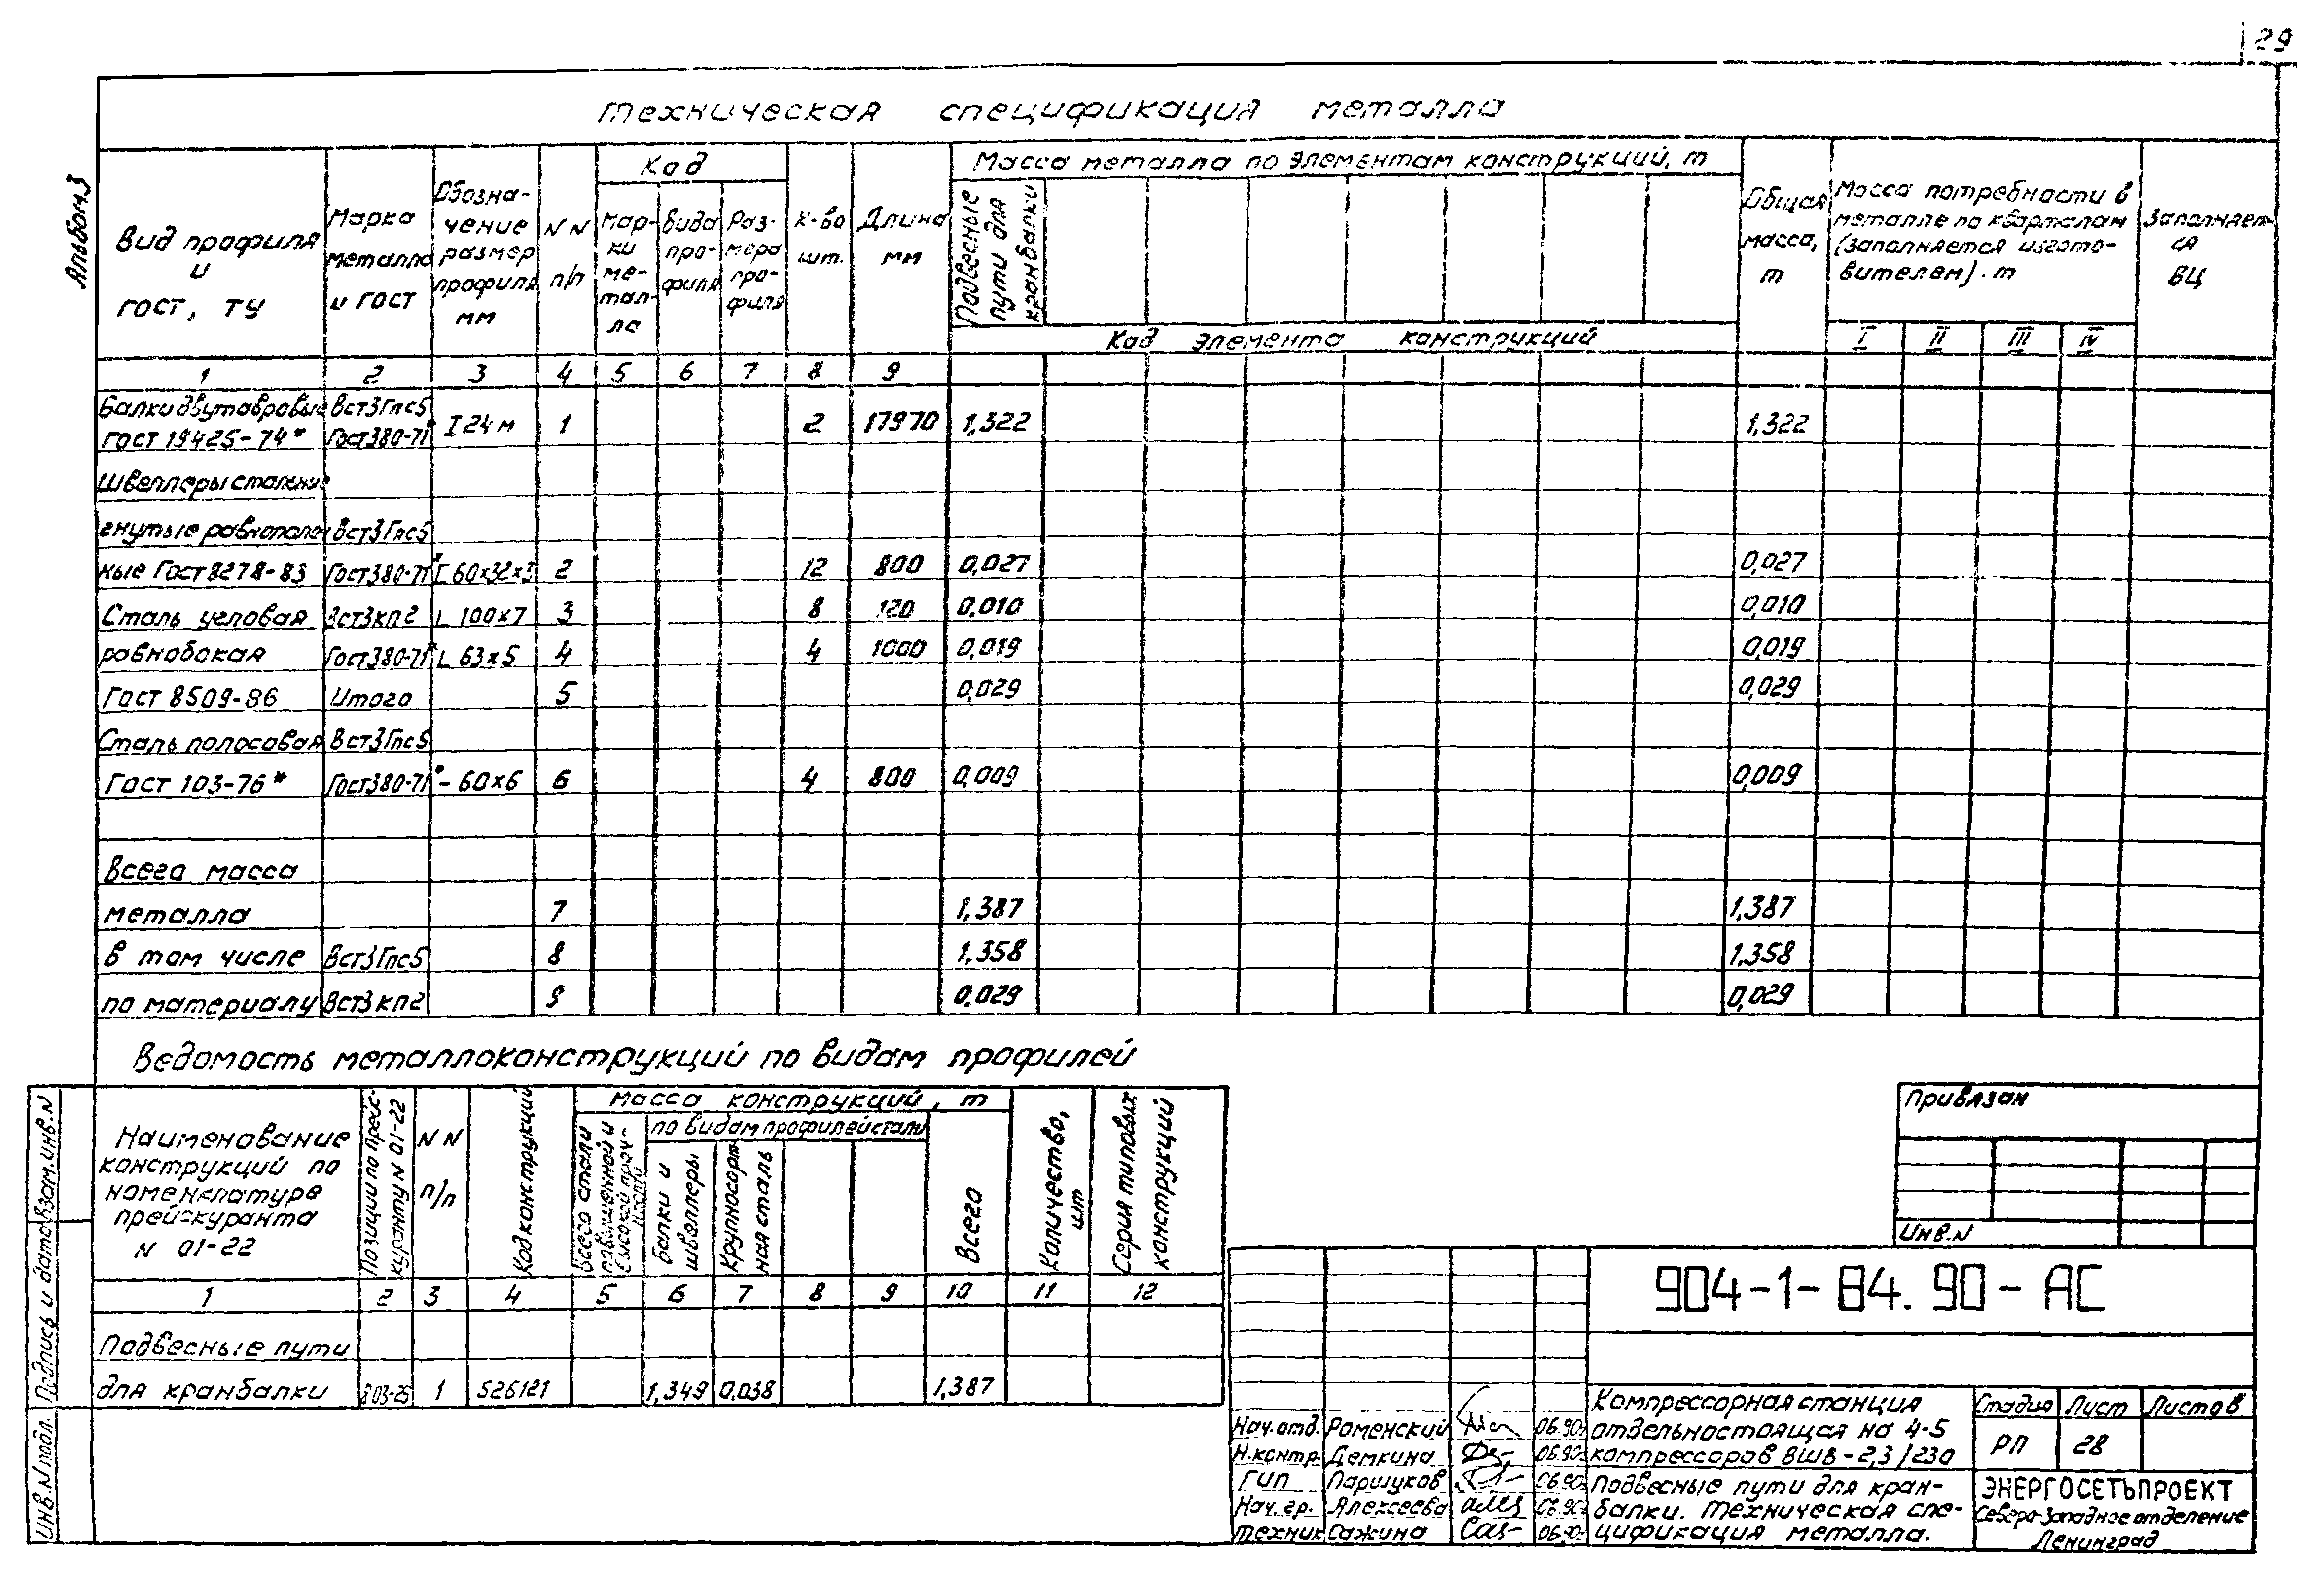 29
Альбом 3
Техническая спецификация металла
Вид профиля и ГОСТ, ТУ
Марка металла и ГОСТ
Обозначение размер профиля мм
N N п/п
Код
Марки металла
Вида профиля
Размера профиля
К-во шт.
Длина мм
Масса металла по элементам конструкций, т
Подвесные пути для кранбалки
Код элемента конструкций
Общая масса, т
Масса потребности в металле по кварталам (заполняется изготовителем). т
I II III IV
Заполняется ВЦ
1 2 3 4 5 6 7 8 9
Балки двутавровые ВСт3Гпс5
ГОСТ 19425-74* ГОСТ380-71* I 24 м 1 2 17970 1,322 1,322
Швеллеры стальные
гнутые равнополоч ВСт3Гпс5
ные ГОСТ 8278-83 ГОСТ380-71* [ 60х32х3 2 12 800 0,027 0,027
Сталь угловая ВСт3кп2 L 100х7 3 8 120 0,010 0,010
равнобокая ГОСТ380-71* L 63х5 4 4 1000 0,019 0,019
ГОСТ 8509-86 Итого 5 0,029 0,029
Сталь полосовая ВСт3Гпс5
ГОСТ 103-76* ГОСТ380-71* – 60х6 6 4 800 0,009 0,009
Всего масса
металла 7 1,387 1,387
в том числе ВСт3Гпс5 8 1,358 1,358
по материалу ВСт3кп2 9 0,029 0,029
Ведомость металлоконструкций по видам профилей
Наименование конструкций по номенклатуре прейскуранта N 01-22
Позиции по прейскуранту N 01-22
N N п/п
Код конструкций
Масса конструкций, т
Всего стали повышенной и высокой прочности
по видам профилей стали
Балки и швеллеры
Крупносортная сталь
Всего
Количество, шт
Серия типовых конструкций
1 2 3 4 5 6 7 8 9 10 11 12
Подвесные пути
для кранбалки 1 526121 1,349 0,038 1,387
Привязан
Инв.N
904-1-84.90-АС
Нач.отд. Роменский 06.90
Н.контр. Демкина 06.90
ГИП Паршуков 06.90
Нач.гр. Алексеева 06.90
Техник Сажина 06.90
Компрессорная станция
отдельностоящая на 4-5
компрессоров ВШВ-2,3/230
Подвесные пути для кран-
балки. Техническая спе-
цификация металла.
Стадия Лист Листов
РП 28
ЭНЕРГОСЕТЬПРОЕКТ
Северо-Западное отделение
Ленинград
Инв.N подл. Подпись и дата Взам.инв.N